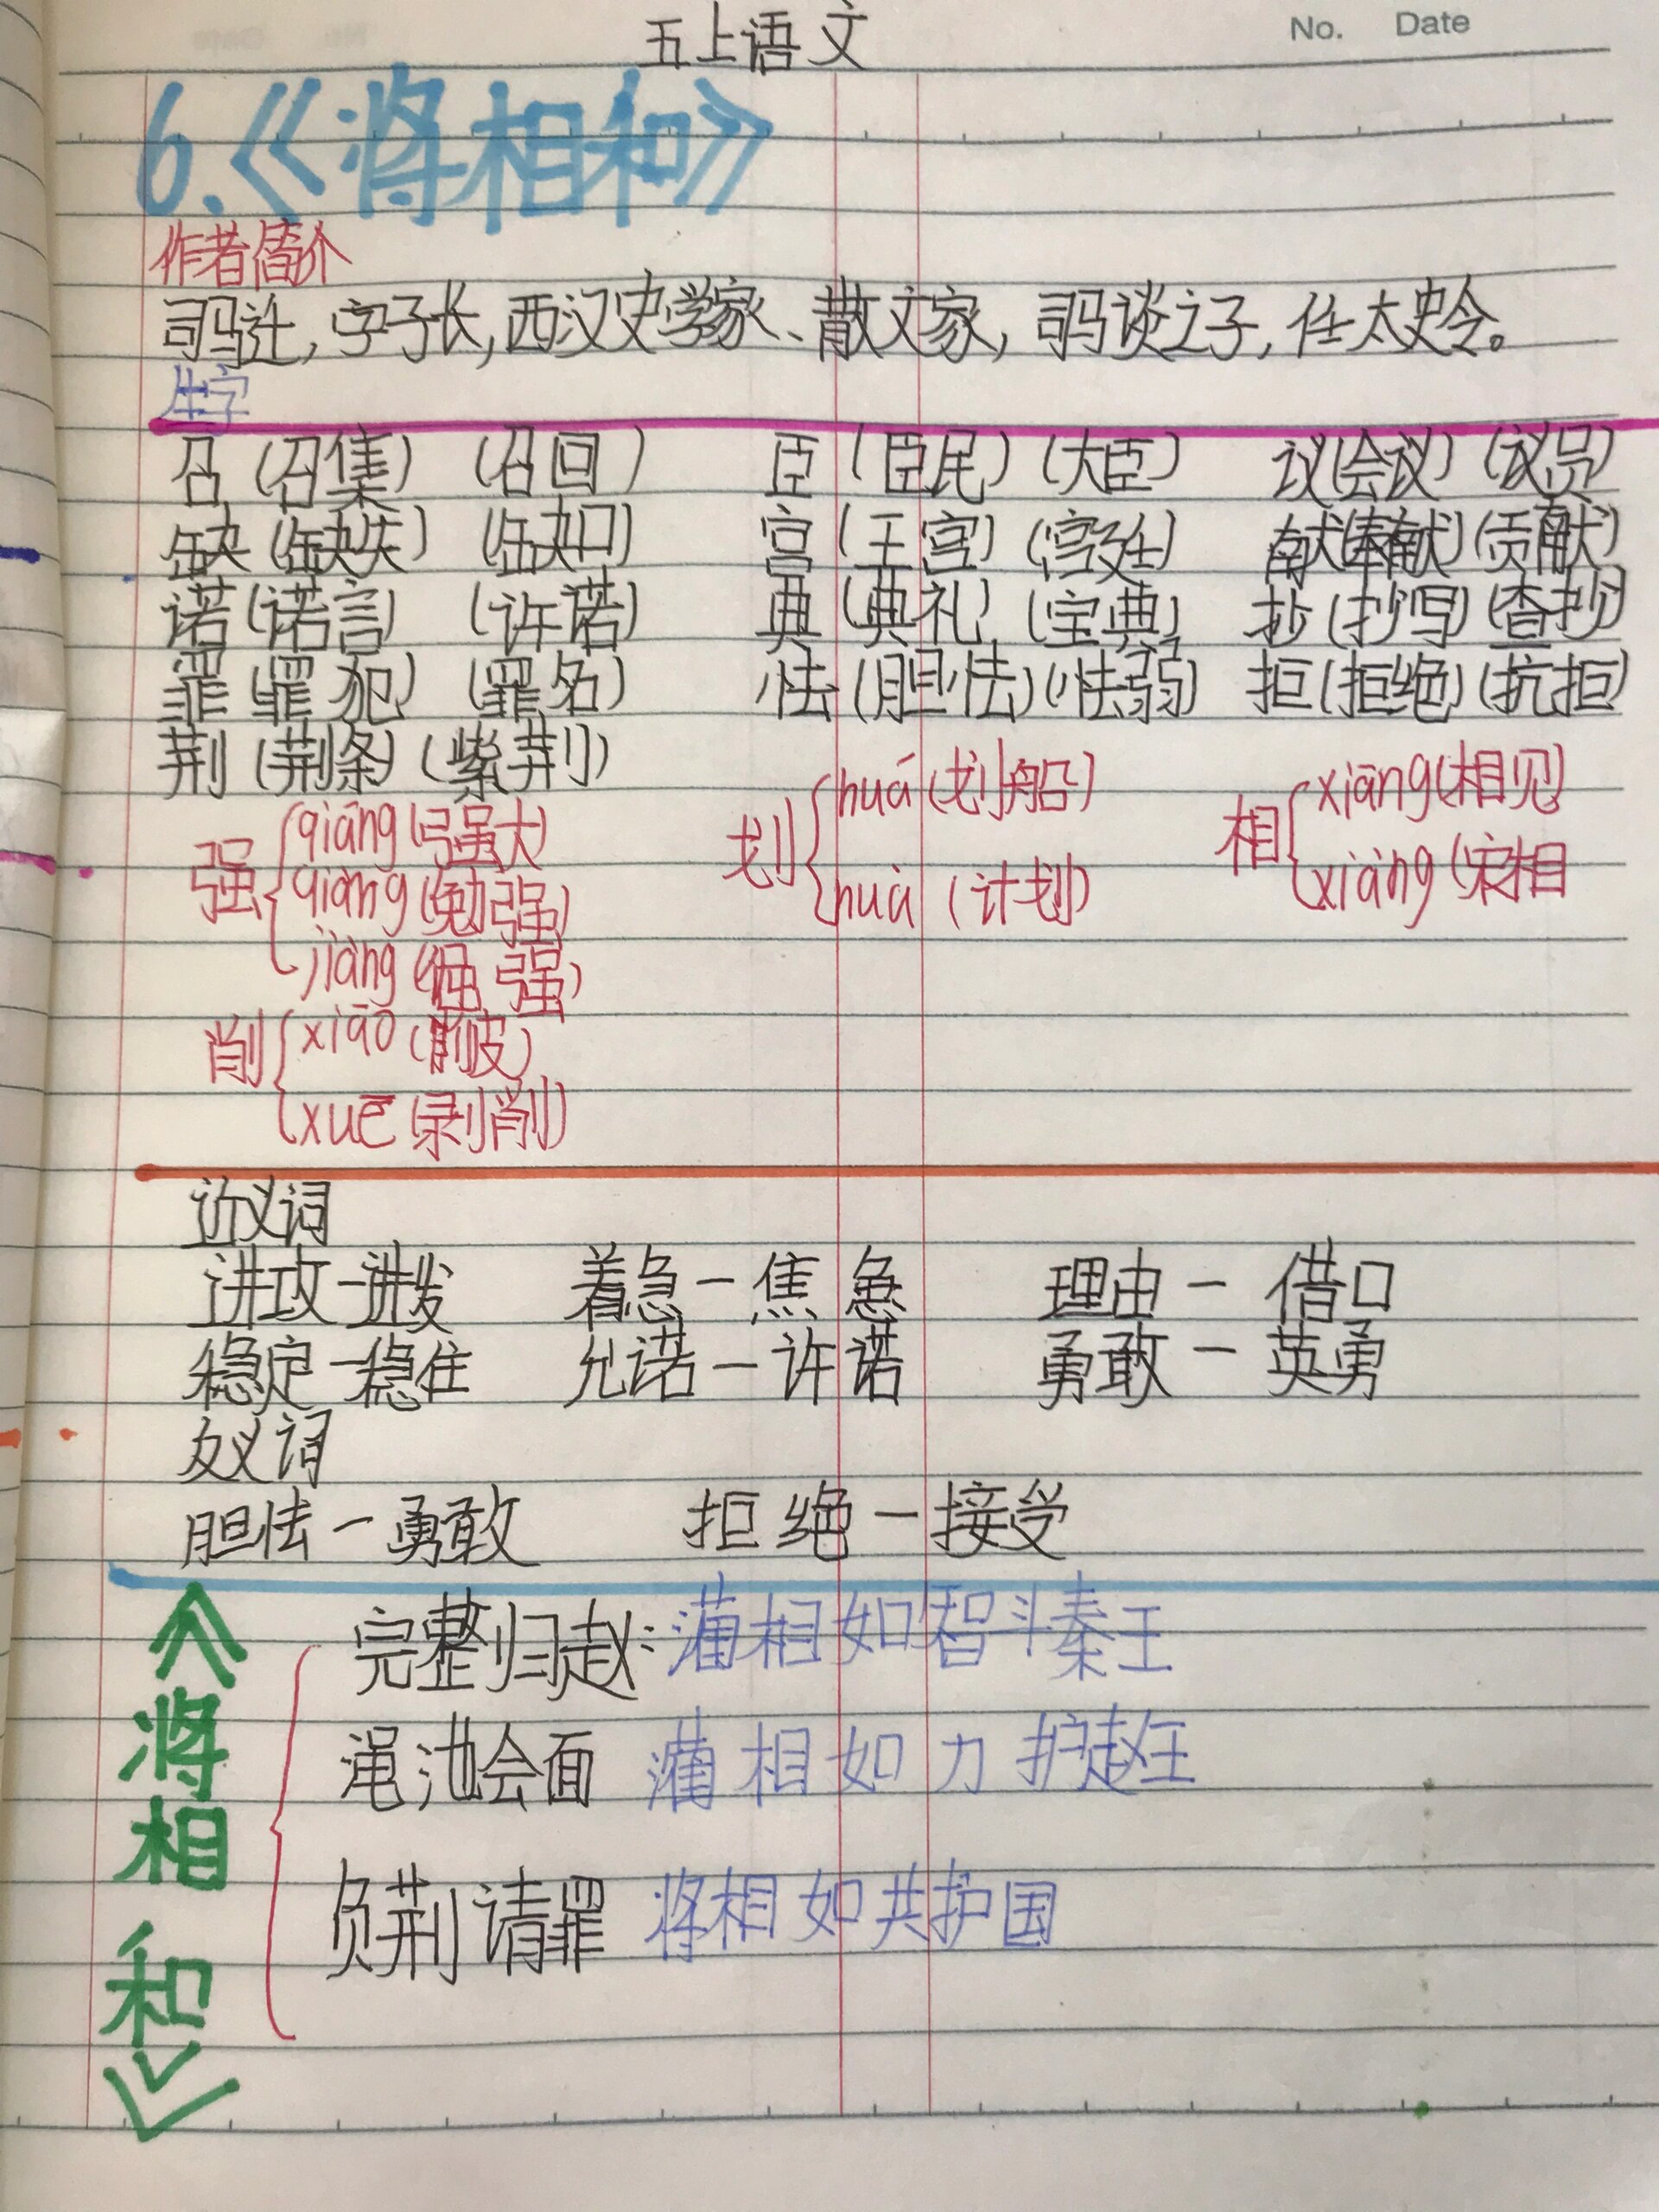 No. Date
五上语文
6.《将相和》
作者简介
司马迁,字子长,西汉史学家、散文家,司马谈之子,任太史令。
生字
召(召集)(召回) 臣(臣民)(大臣) 议(会议)(议员)
缺(缺失)(缺口) 宫(王宫)(宫廷) 献(奉献)(贡献)
诺(诺言)(许诺) 典(典礼)(宝典) 抄(抄写)(查抄)
罪(罪犯)(罪名) 怯(胆怯)(怯弱) 拒(拒绝)(抗拒)
荆(荆条)(紫荆)
强{qiáng(强大) 划{huá(划船) 相{xiāng(相见)
qiǎng(勉强) huà(计划) xiàng(宰相
jiàng(倔强)
削{xiāo(削皮)
xuē(剥削)
近义词
进攻—进发 着急—焦急 理由—借口
稳定—稳住 允诺—许诺 勇敢—英勇
反义词
胆怯—勇敢 拒绝—接受
《将相和》
完整归赵:蔺相如智斗秦王
渑池会面 蔺相如力护赵王
负荆请罪 将相如共护国